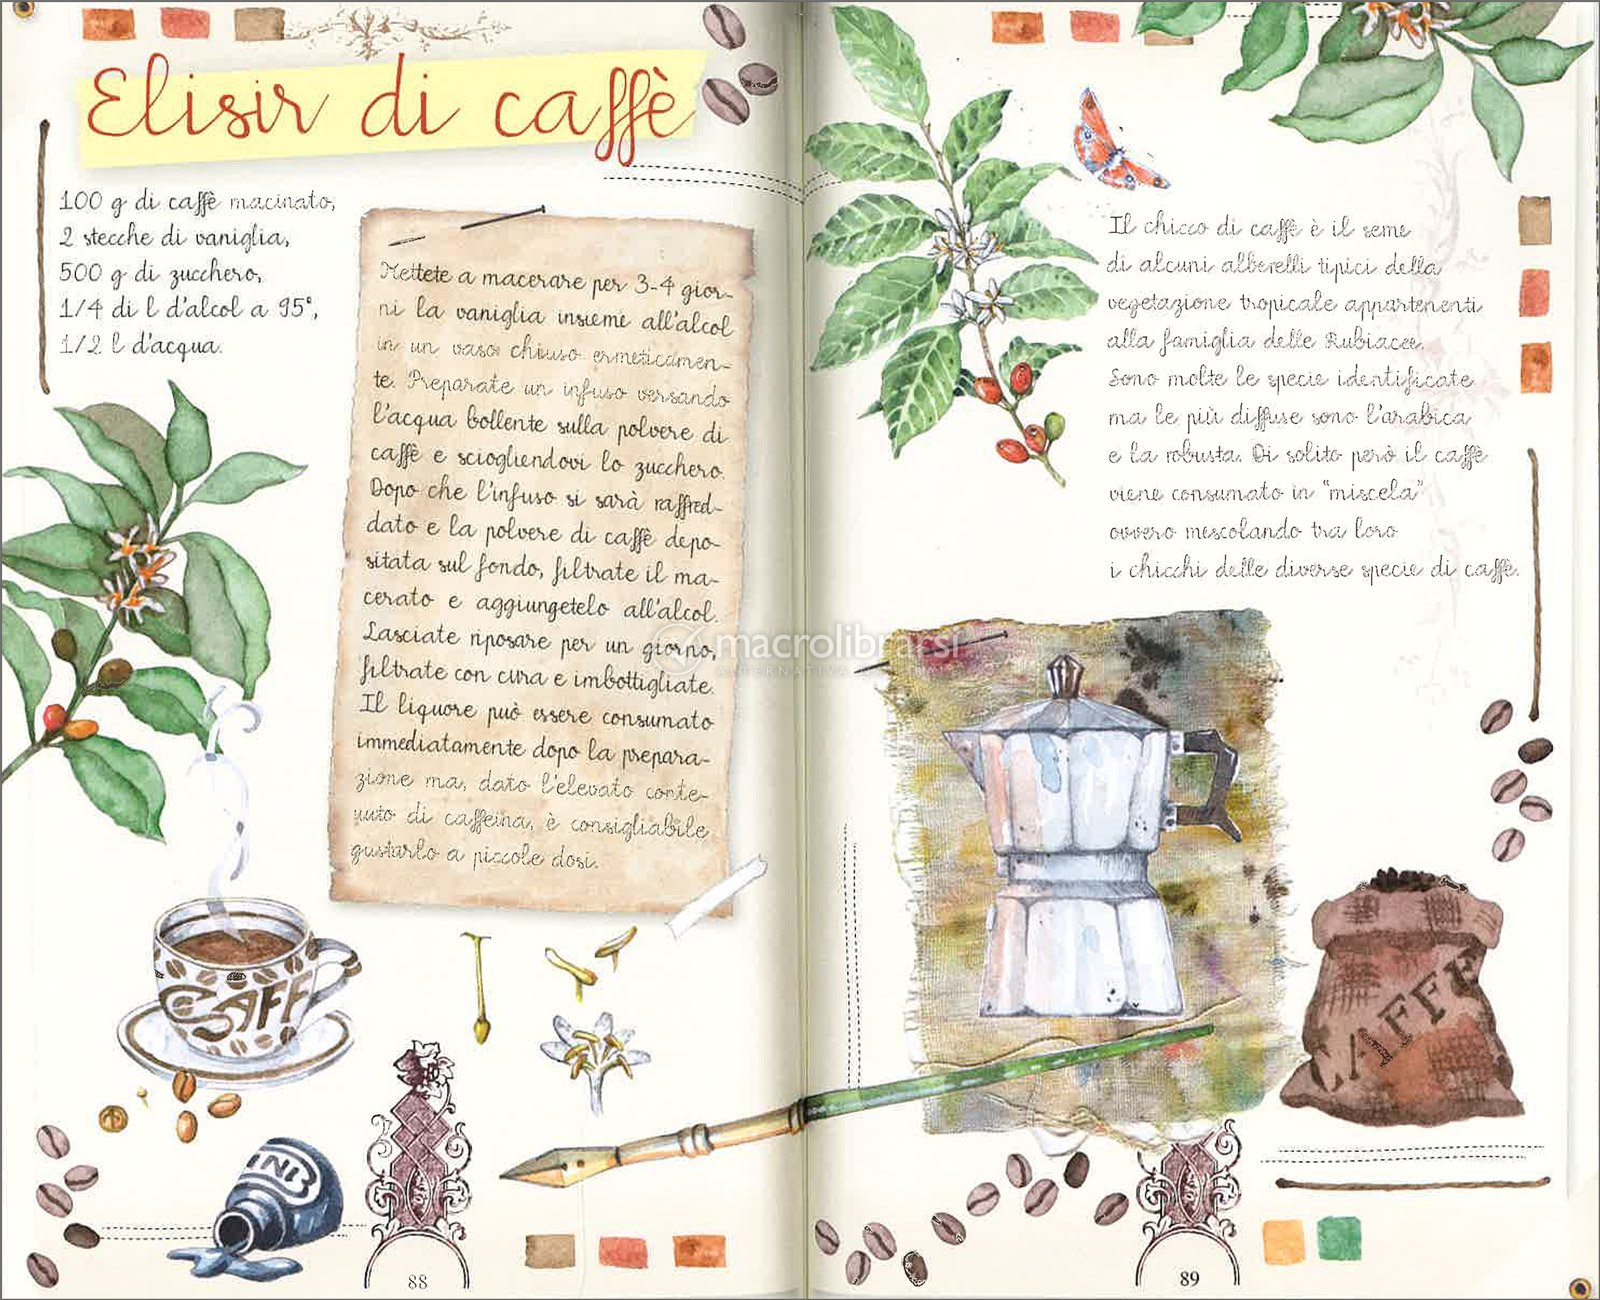 Elisir di caffè
100 g di caffè macinato,
2 stecche di vaniglia,
500 g di zucchero,
1/4 di l d'alcol a 95°,
1/2 l d'acqua.
Mettete a macerare per 3-4 gior-
ni la vaniglia insieme all'alcol
in un vaso chiuso ermeticamen-
te. Preparate un infuso versando
l'acqua bollente sulla polvere di
caffè e sciogliendovi lo zucchero.
Dopo che l'infuso si sarà raffred-
dato e la polvere di caffè depo-
sitata sul fondo, filtrate il ma-
cerato e aggiungetelo all'alcol.
Lasciate riposare per un giorno,
filtrate con cura e imbottigliate.
Il liquore può essere consumato
immediatamente dopo la prepara-
zione ma, dato l'elevato conte-
nuto di caffeina, è consigliabile
gustarlo a piccole dosi.
CAFF
INK
88
Il chicco di caffè è il seme
di alcuni alberelli tipici della
vegetazione tropicale appartenenti
alla famiglia delle Rubiacee.
Sono molte le specie identificate
ma le più diffuse sono l'arabica
e la robusta. Di solito però il caffè
viene consumato in "miscela"
ovvero mescolando tra loro
i chicchi delle diverse specie di caffè.
macrolibrarsi
CAFFE
89